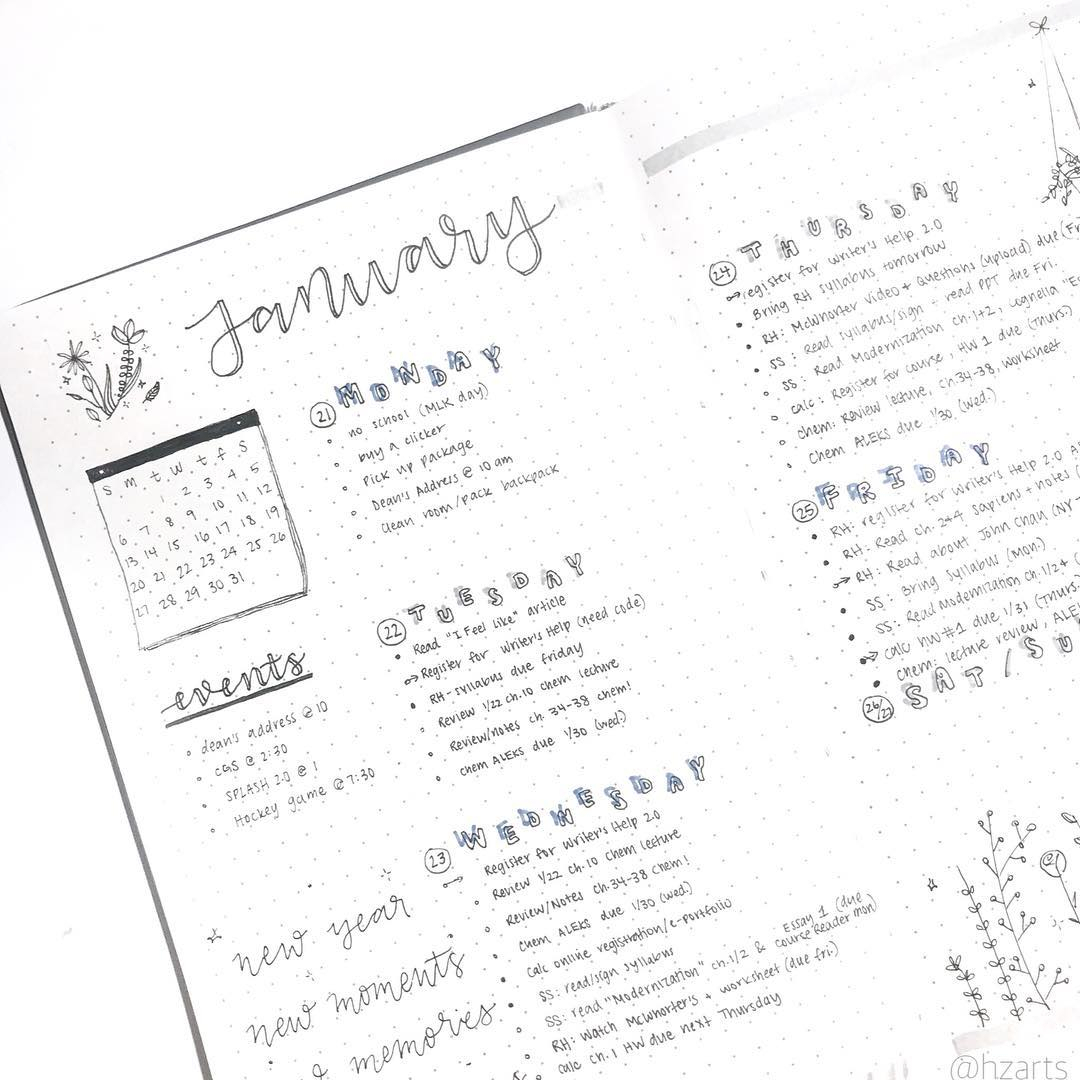 January
S m t w t f S
1 2 3 4 5
6 7 8 9 10 11 12
13 14 15 16 17 18 19
20 21 22 23 24 25 26
27 28 29 30 31
events
dean's address @ 10
CGS @ 2:30
SPLASH 2.0 @ 1
Hockey game @ 7:30
new year
new moments
memories
21 MONDAY
no school (MLK day)
buy a clicker
Pick up package
Dean's Address @ 10 am
Clean room/pack backpack
22 TUESDAY
Read "I Feel Like" article
Register for writer's Help (need code)
RH-syllabus due friday
Review 1/22 ch.10 chem lecture
Review/notes ch. 34-38 chem!
Chem ALEKS due 1/30 (wed.)
23 WEDNESDAY
Register for Writer's Help 2.0
Review 1/22 ch.10 Chem lecture
Review/Notes ch.34-38 Chem!
Chem ALEKS due 1/30 (wed.)
Calc online registration/e-portfolio
SS: read/sign syllabus
SS: read "Modernization" ch.1/2 & Essay 1 (due
course Reader mon)
RH: Watch McWhorter's + worksheet (due fri.)
Calc ch.1 HW due next Thursday
24 THURSDAY
register for writer's Help 2.0
Bring RH syllabus tomorrow
RH: McWhorter video + Questions (upload) due (Fr
SS: Read syllabus/sign + read PPT due Fri.
SS: Read Modernization ch.1+2, cognella
calc: Register for course, HW 1 due (Thurs.)
chem: Review lecture, ch.34-38, worksheet
Chem ALEKS due 1/30 (wed.)
25 FRIDAY
RH: register for Writer's Help 2.0
RH: Read ch. 2+4 sapiens + notes
RH: Read about John Chau
SS: Bring Syllabus (mon.)
SS: Read Modernization ch.1/2+
calc hw #1 due 1/31 (Thurs
chem: lecture review, ALE
26/27 SAT/SU
@hzarts